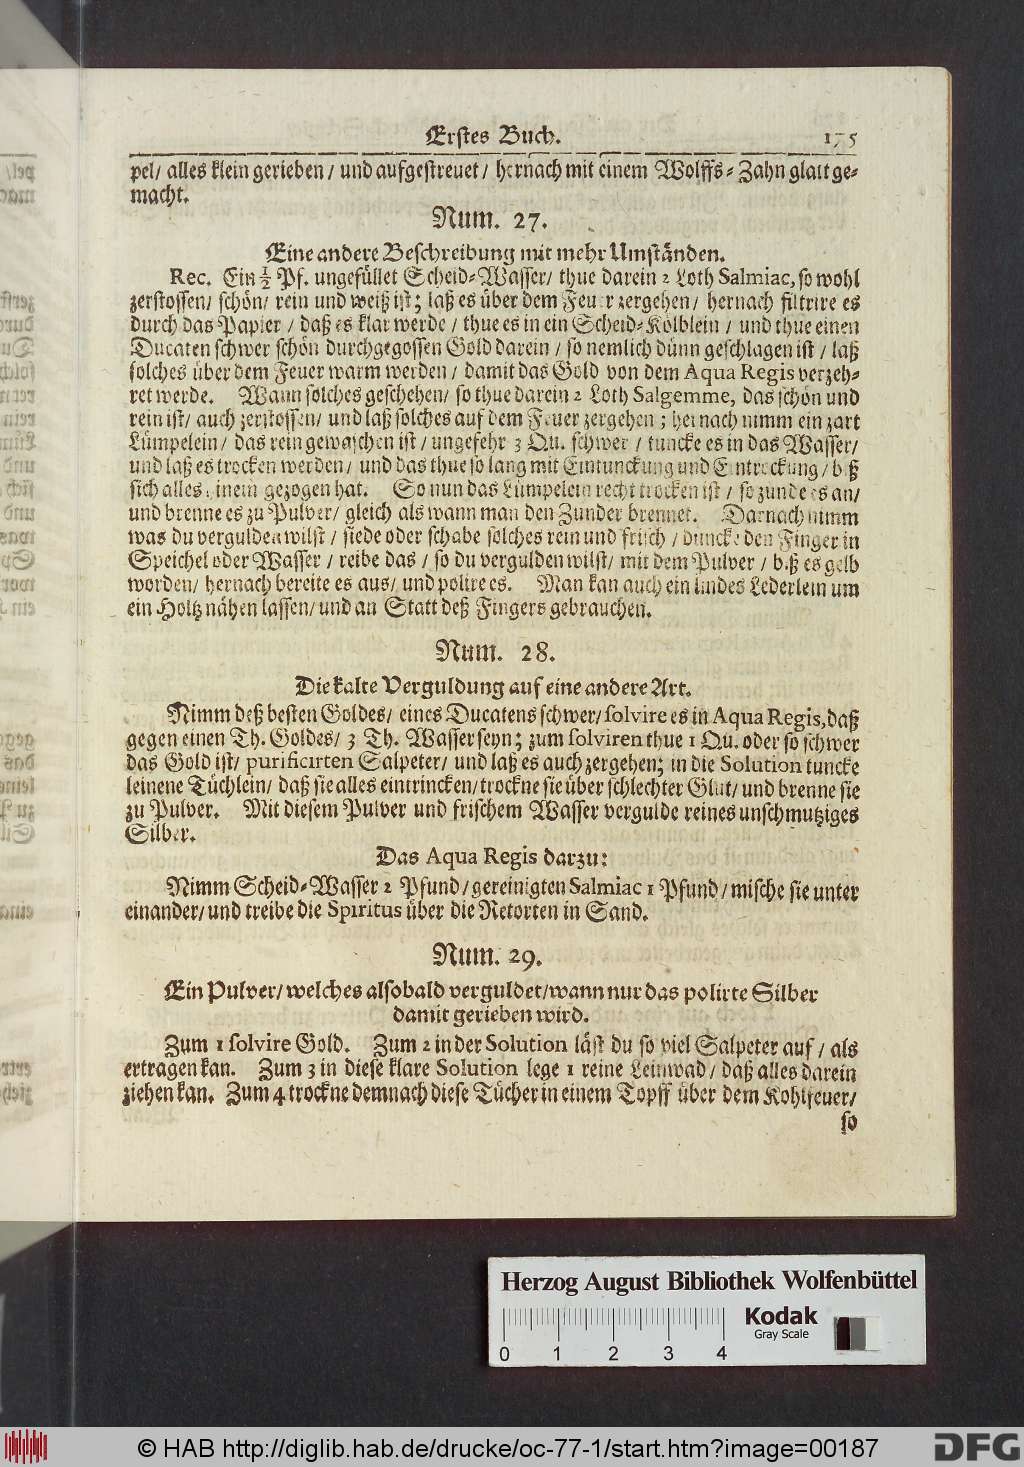 Erstes Buch. 175
pel/ alles klein gerieben / und aufgestreuet / hernach mit einem Wolffs-Zahn glatt ge-
macht.
Num. 27.
Eine andere Beschreibung mit mehr Umständen.
Rec. Ein ½ Pf. ungefüllet Scheid-Wasser/ thue darein 2 Loth Salmiac, so wohl
zerstossen/ schön/ rein und weiß ist; laß es über dem Feuer zergehen/ hernach filtrire es
durch das Papier / daß es klar werde / thue es in ein Scheid-Kölblein / und thue einen
Ducaten schwer schön durchgegossen Gold darein / so nemlich dünn geschlagen ist / laß
solches über dem Feuer warm werden / damit das Gold von dem Aqua Regis verzeh-
ret werde. Wann solches geschehen/ so thue darein 2 Loth Salgemme, das schön und
rein ist/ auch zerstossen/ und laß solches auf dem Feuer zergehen; hernach nimm ein zart
Lümpelein/ das rein gewaschen ist / ungefehr 3 Qu. schwer / tuncke es in das Wasser/
und laß es trocken werden/ und das thue so lang mit Eintunckung und Eintreckung / biß
sich alles hinein gezogen hat. So nun das Lümpelein recht trocken ist / so zünde es an/
und brenne es zu Pulver/ gleich als wann man den Zunder brennet. Darnach nimm
was du vergulden wilst / siede oder schabe solches rein und frisch / duncke den Finger in
Speichel oder Wasser / reibe das / so du vergulden wilst/ mit dem Pulver / biß es gelb
worden/ hernach bereite es aus/ und polire es. Man kan auch ein lindes Lederlein um
ein Holtz nähen lassen/ und an Statt deß Fingers gebrauchen.
Num. 28.
Die kalte Verguldung auf eine andere Art.
Nimm deß besten Goldes/ eines Ducatens schwer/ solvire es in Aqua Regis, daß
gegen einen Th. Goldes/ 3 Th. Wasser seyn; zum solviren thue 1 Qu. oder so schwer
das Gold ist/ purificirten Salpeter/ und laß es auch zergehen; in die Solution tuncke
leinene Tüchlein/ daß sie alles eintrincken/ trockne sie über schlechter Glut/ und brenne sie
zu Pulver. Mit diesem Pulver und frischem Wasser vergulde reines unschmutziges
Silber.
Das Aqua Regis darzu:
Nimm Scheid-Wasser 2 Pfund/ gereinigten Salmiac 1 Pfund/ mische sie unter
einander/ und treibe die Spiritus über die Retorten in Sand.
Num. 29.
Ein Pulver/ welches alsobald verguldet/ wann nur das polirte Silber
damit gerieben wird.
Zum 1 solvire Gold. Zum 2 in der Solution läst du so viel Salpeter auf / als
ertragen kan. Zum 3 in diese klare Solution lege 1 reine Leinwad/ daß alles darein
ziehen kan. Zum 4 trockne demnach diese Tücher in einem Topff über dem Kohlfeuer/
so
Herzog August Bibliothek Wolfenbüttel
Kodak
Gray Scale
0 1 2 3 4
© HAB http://diglib.hab.de/drucke/oc-77-1/start.htm?image=00187
DFG